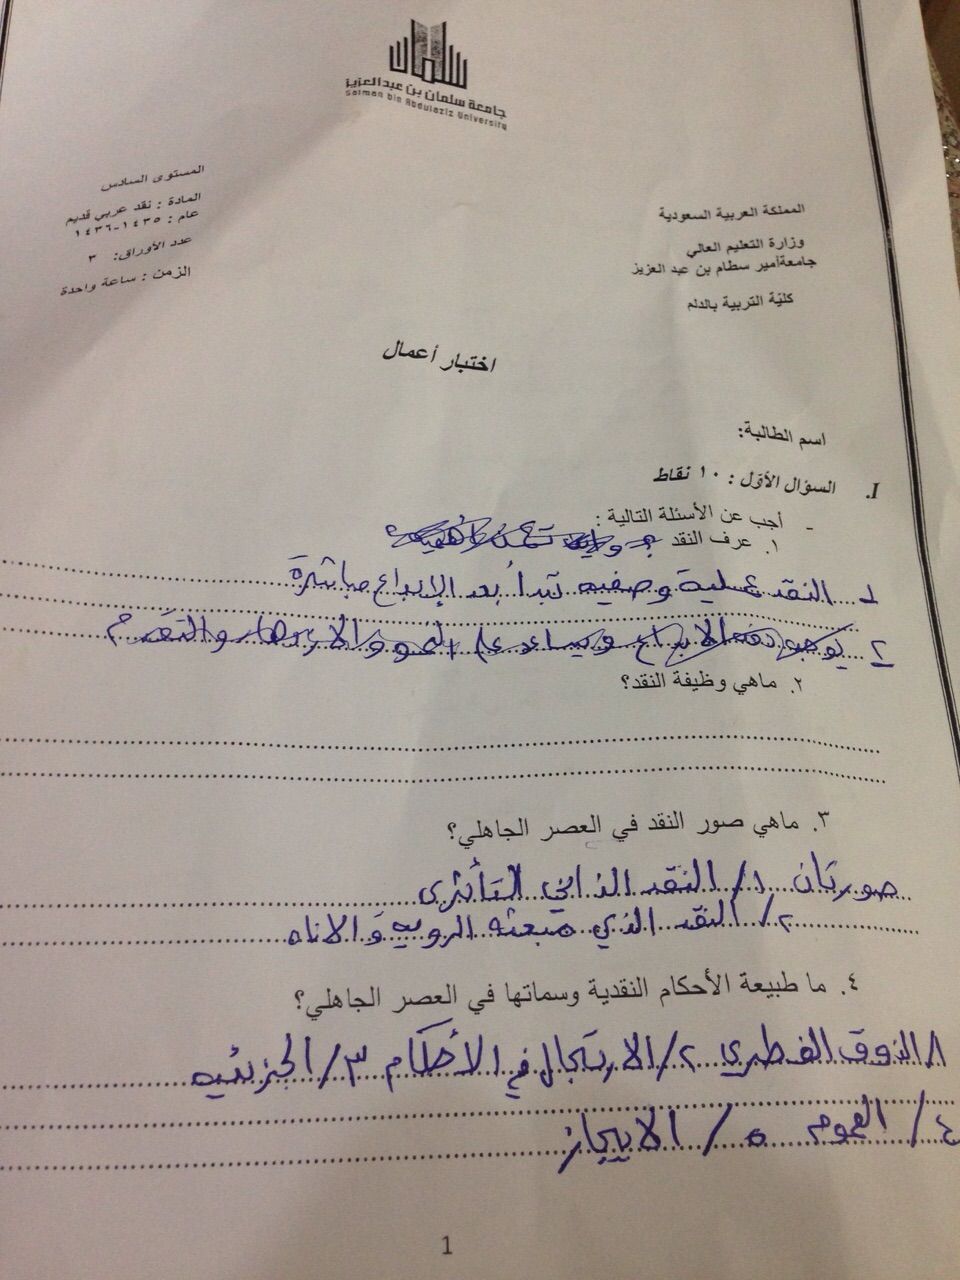 جامعة سلمان بن عبدالعزيز
Salman bin Abdulaziz University
المملكة العربية السعودية
وزارة التعليم العالي
جامعةأمير سطام بن عبد العزيز
كليّة التربية بالدلم
المستوى السادس
المادة : نقد عربي قديم
عام : ١٤٣٥-١٤٣٦
عدد الأوراق: ٣
الزمن : ساعة واحدة
اختبار أعمال
اسم الطالبة:
I. السؤال الأوّل : ١٠ نقاط
- أجب عن الأسئلة التالية :
١. عرف النقد
١ النقد عملية وصفيه تبدأ بعد الإبداع مباشرة
٢ الابداع ويساعد على النمو والازدهار والتقدم
٢. ماهي وظيفة النقد؟
٣. ماهي صور النقد في العصر الجاهلي؟
صورتان ١/ النقد الذاتي التأثري
٢/ النقد الذي مبعثه الرويه والاناه
٤. ما طبيعة الأحكام النقدية وسماتها في العصر الجاهلي؟
١/ الذوق الفطري ٢/ الارتجال في الأحكام ٣/ الجزئيه
٤/ العموم ٥/ الايجاز
1